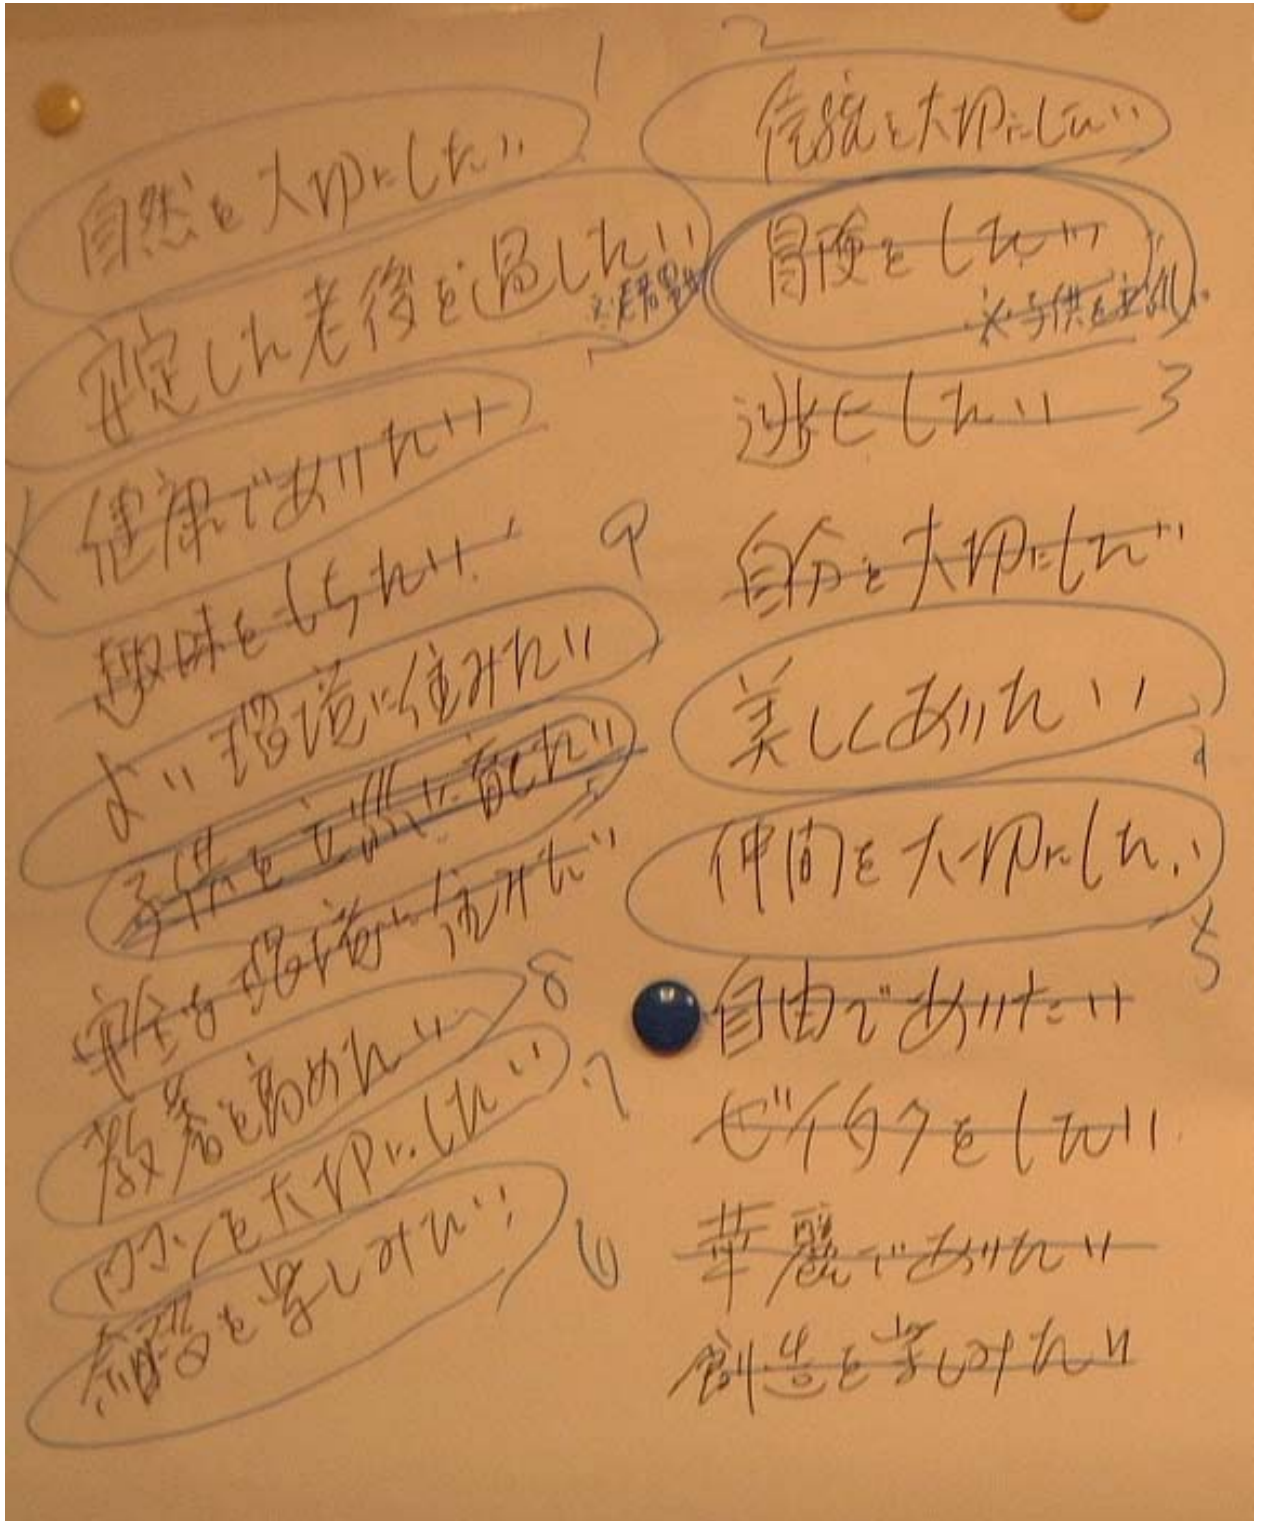 1
自然を大切にしたい
安定した老後を過したい
健康でありたい
趣味をもちたい
9
よい環境に住みたい
子供を立派に育てたい
安全な環境に住みたい
8
教養を高めたい
7
を大切にしたい
を楽しみたい
6
2
伝統を大切にしたい
冒険をしたい
※子供を立派に
逃亡したい 3
自分を大切にしたい
美しくありたい
4
仲間を大切にしたい
5
自由でありたい
ゼイタクをしたい
華麗でありたい
創造を楽しみたい